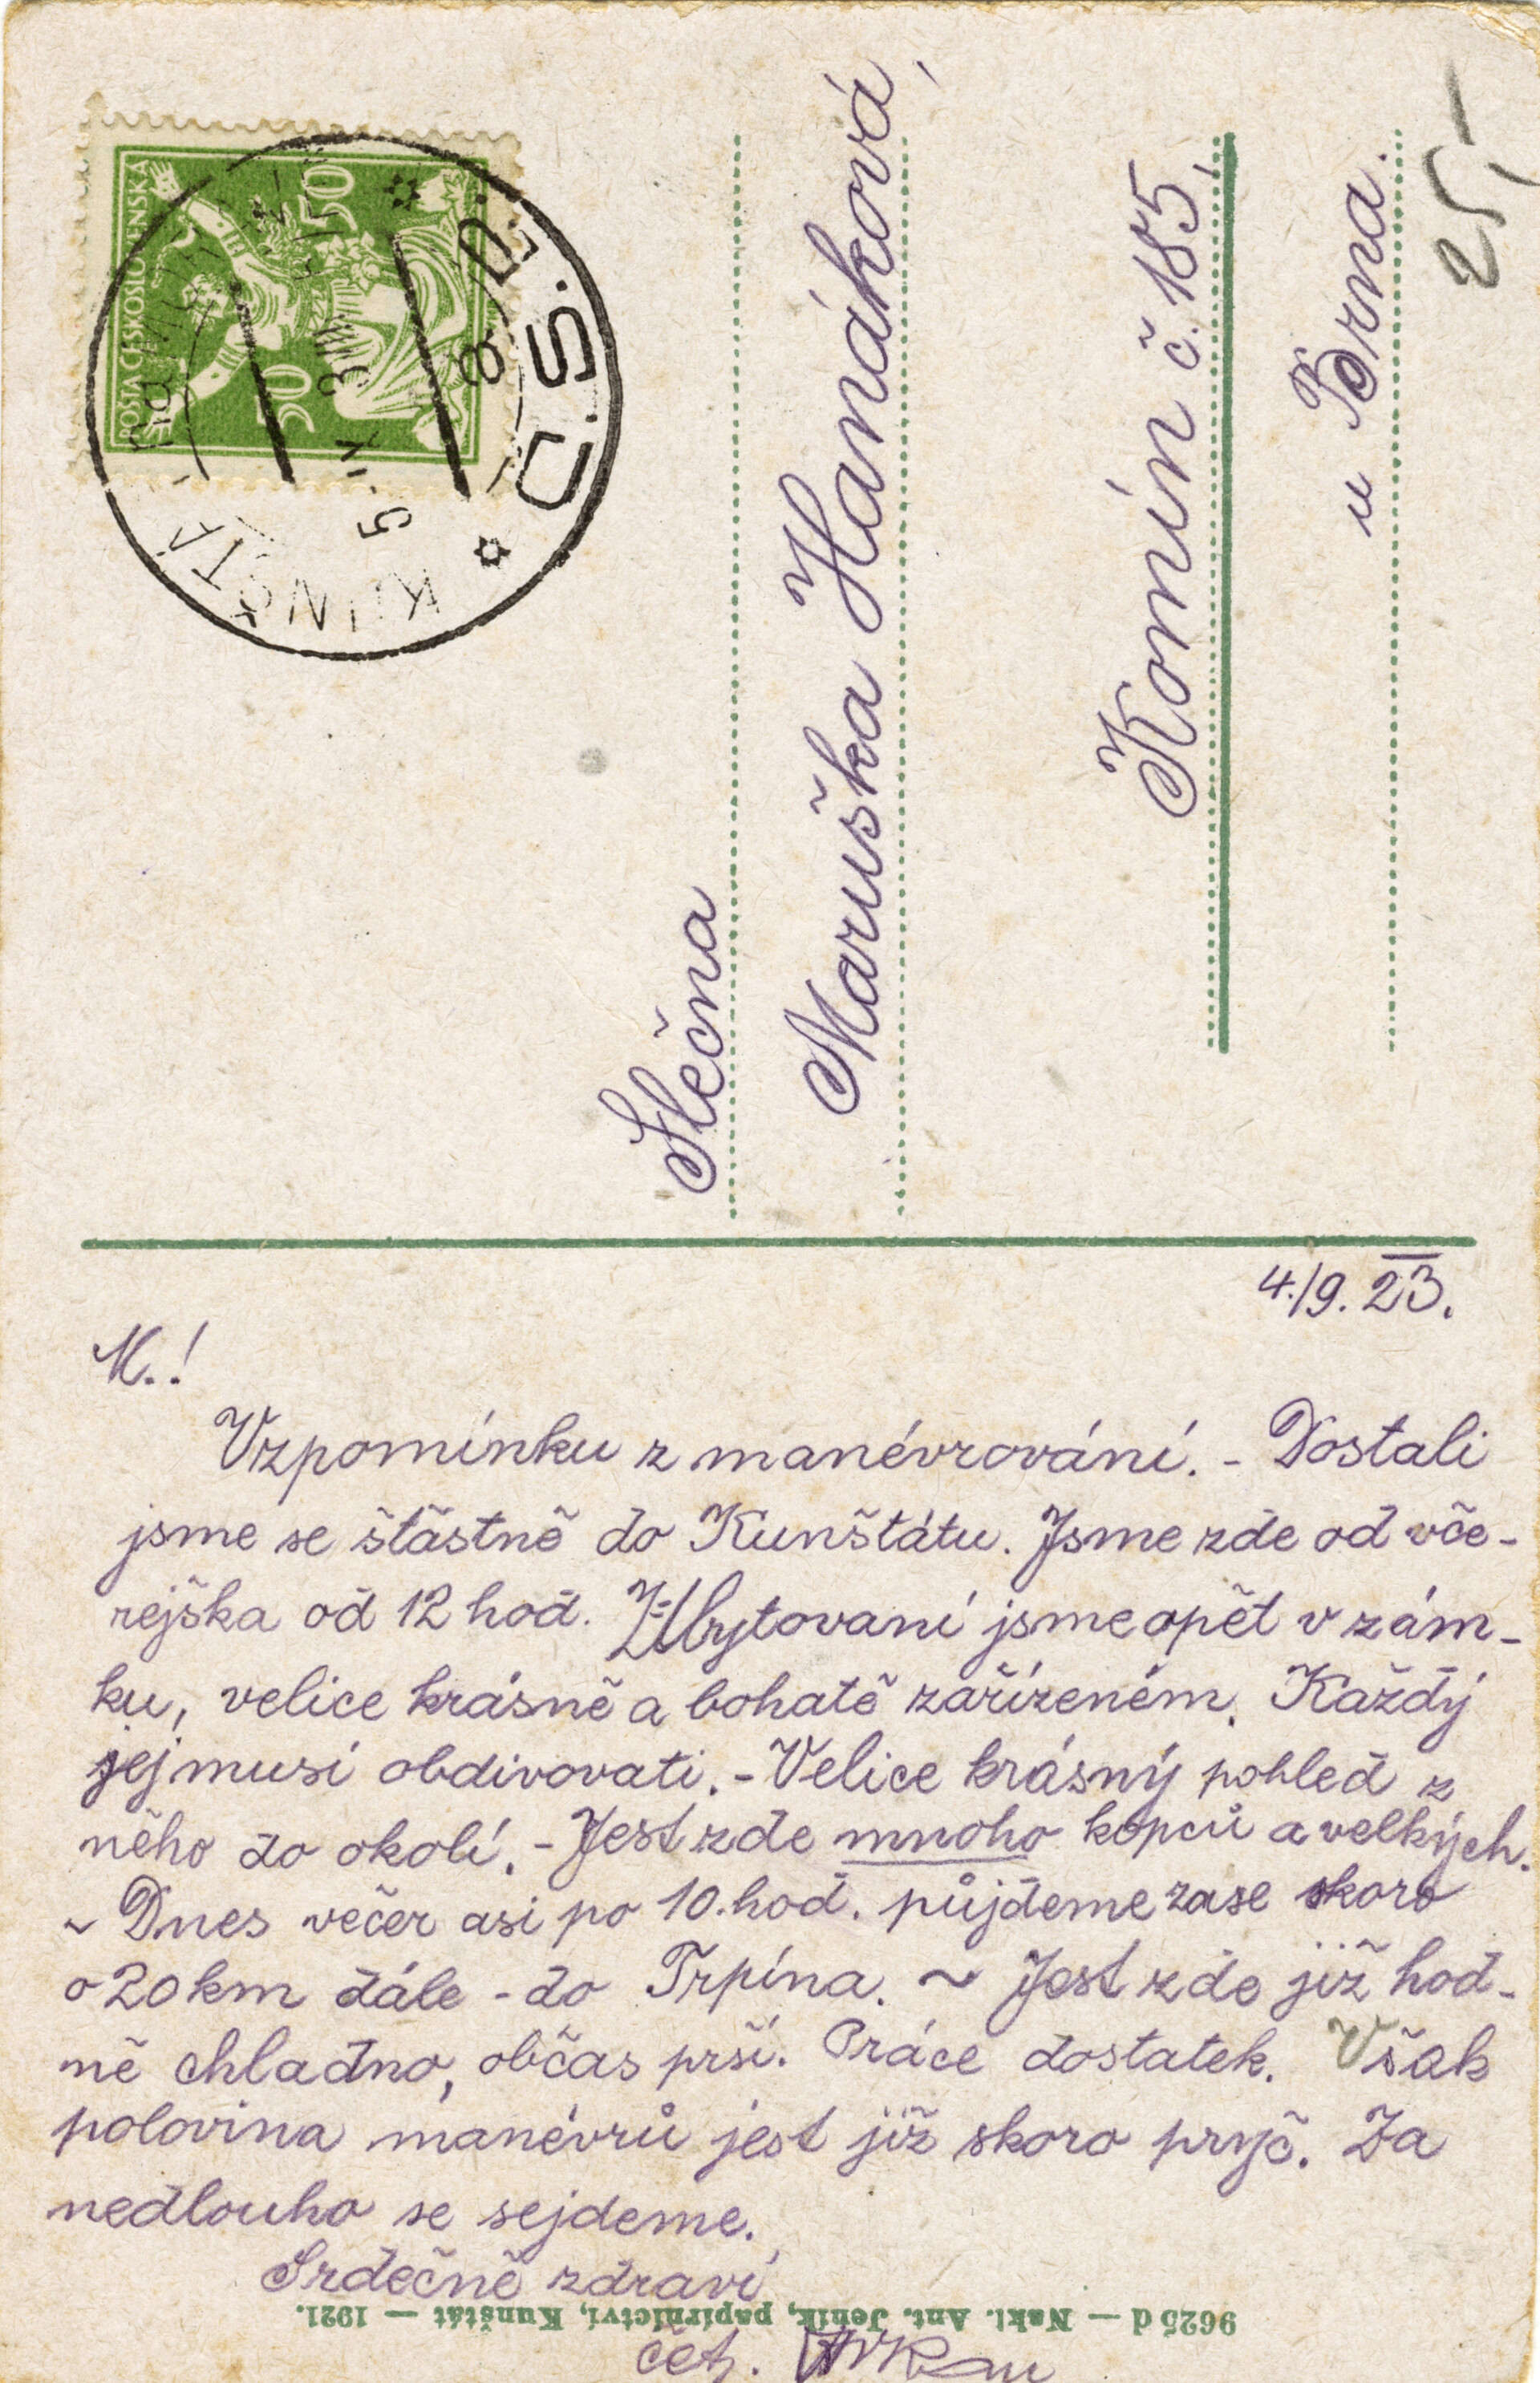 POŠTA ČESKOSLOVENSKÁ
50 50
Č.S.P.
5. IX 23
KUNŠTÁT
25,-
Slečna
Maruška Hanáková,
Komín č. 185,
u Brna.
4./9. 23.
M.!
Vzpomínku z manévrování. - Dostali
jsme se štastně do Kunštátu. Jsme zde od vče-
rejška od 12 hod. Ubytovaní jsme opět v zám-
ku, velice krásně a bohatě zařízeném. Každý
jej musí obdivovati. - Velice krásný pohled z
něho do okolí. - Jest zde mnoho kopců a velkých.
~ Dnes večer asi po 10. hod. půjdeme zase skoro
o 20 km dále - do Trpína. ~ Jest zde již hod-
ně chladno, občas prší. Práce dostatek. Však
polovina manévrů jest již skoro pryč. Za
nedlouho se sejdeme.
Srdečně zdraví
čet.
9625 d — Nakl. Ant. Jeník, papírnictví, Kunštát — 1921.